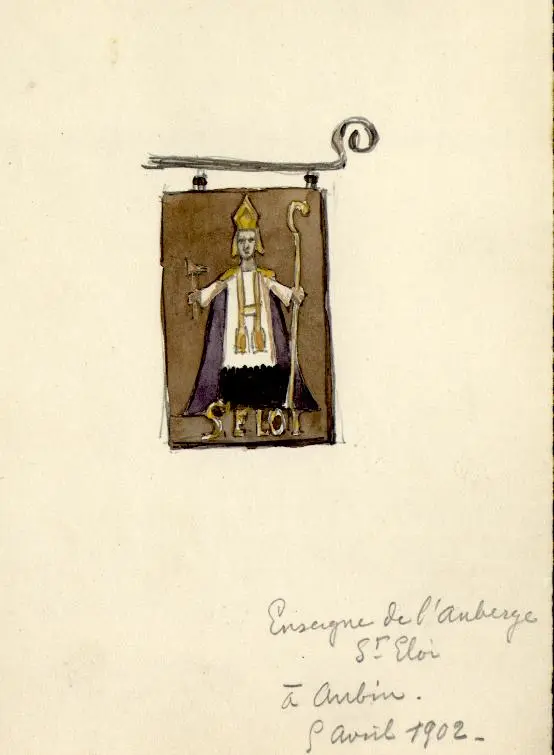 St ELOI
Enseigne de l'Auberge
St Eloi
à Aubin.
9 avril 1902-